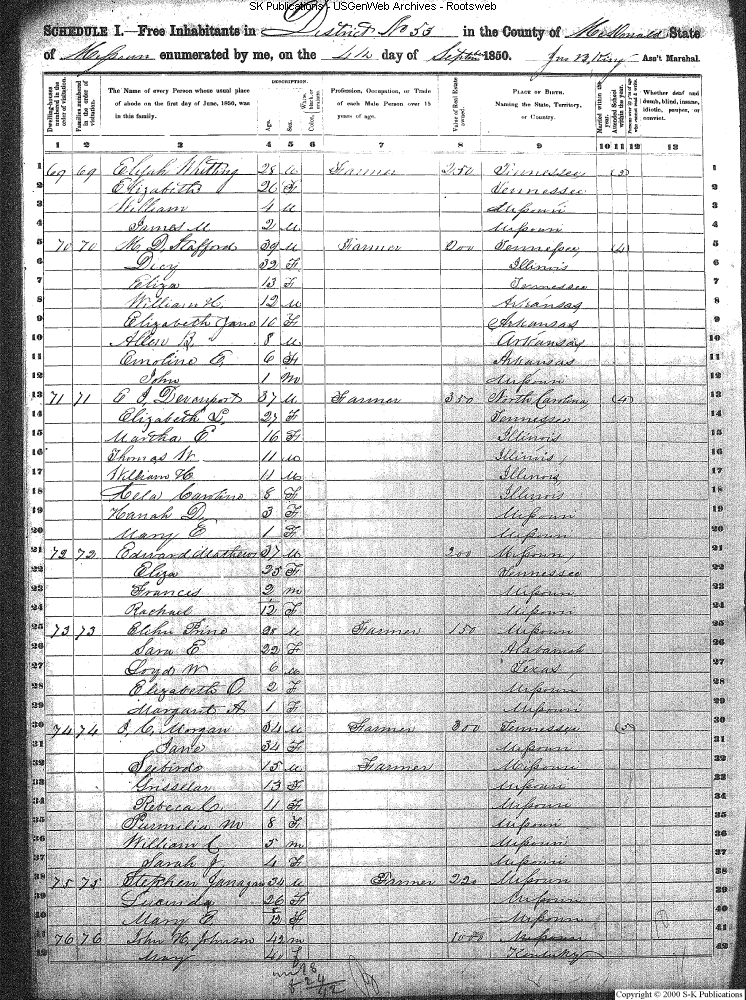 SK Publications - USGenWeb Archives - Rootsweb
SCHEDULE I.—Free Inhabitants in District No 53 in the County of McDonald State
of Missouri enumerated by me, on the 4th day of Septem 1850. Jno B King Ass't Marshal.
Dwelling-houses numbered in the order of visitation. Families numbered in the order of visitation. The Name of every Person whose usual place of abode on the first day of June, 1850, was in this family. DESCRIPTION. Age. Sex. Color, White, black or mulatto. Profession, Occupation, or Trade of each Male Person over 15 years of age. Value of Real Estate owned. PLACE OF BIRTH. Naming the State, Territory, or Country. Married within the year. Attended School within the year. Persons over 20 y'rs of age who cannot read & write. Whether deaf and dumb, blind, insane, idiotic, pauper, or convict.
1 2 3 4 5 6 7 8 9 10 11 12 13
1 69 69 Elijah 28 M Farmer 250 Tennessee 1
2 Elizabeth 26 F Tennessee 2
3 William 4 M Missouri 3
4 James M 2 M Missouri 4
5 70 70 Stafford 39 M Farmer 200 Tennessee 5
6 Dicy 32 F Illinois 6
7 Eliza 13 F Tennessee 7
8 William H. 12 M Arkansas 8
9 Elizabeth Jane 10 F Arkansas 9
10 Allen B 8 M Arkansas 10
11 Emoline E 6 F Arkansas 11
12 John 1 M Missouri 12
13 71 71 C J Devenport 37 M Farmer 350 North Carolina (4) 13
14 Elizabeth S. 27 F Tennessee 14
15 Martha E 16 F Illinois 15
16 Thomas W. 11 M Illinois 16
17 William H 11 M Illinois 17
18 Caroline 8 F Illinois 18
19 Hanah D 3 F Missouri 19
20 Mary E 1 F Missouri 20
21 72 72 Edward Mathews 37 M 200 Missouri 21
22 Eliza 25 F Tennessee 22
23 Francis 2 M Missouri 23
24 Rachael 1/12 F Missouri 24
25 73 73 Elihu 28 M Farmer 150 Missouri 25
26 Sara E 22 F Alabamah 26
27 Loyd W 6 M Texas 27
28 Elizabeth O. 2 F Missouri 28
29 Margaret A 1 F Missouri 29
30 74 74 J. C. Morgan 34 M Farmer 300 Tennessee 30
31 Jane 34 F Missouri 31
32 15 M Farmer Missouri 32
33 Grisselar 13 F Missouri 33
34 Rebeca C 11 F Missouri 34
35 Purmilia M 8 F Missouri 35
36 William C 5 M Missouri 36
37 Sarah J 4 F Missouri 37
38 75 75 Stephen 34 M Farmer 220 Missouri 38
39 Lucinda 26 F Missouri 39
40 Mary E /12 F Missouri 40
41 76 76 John H Johnson 42 M 1000 Missouri 41
42 Mary 40 F Kentucky 42
18
24
42
Copyright © 2000 S-K Publications